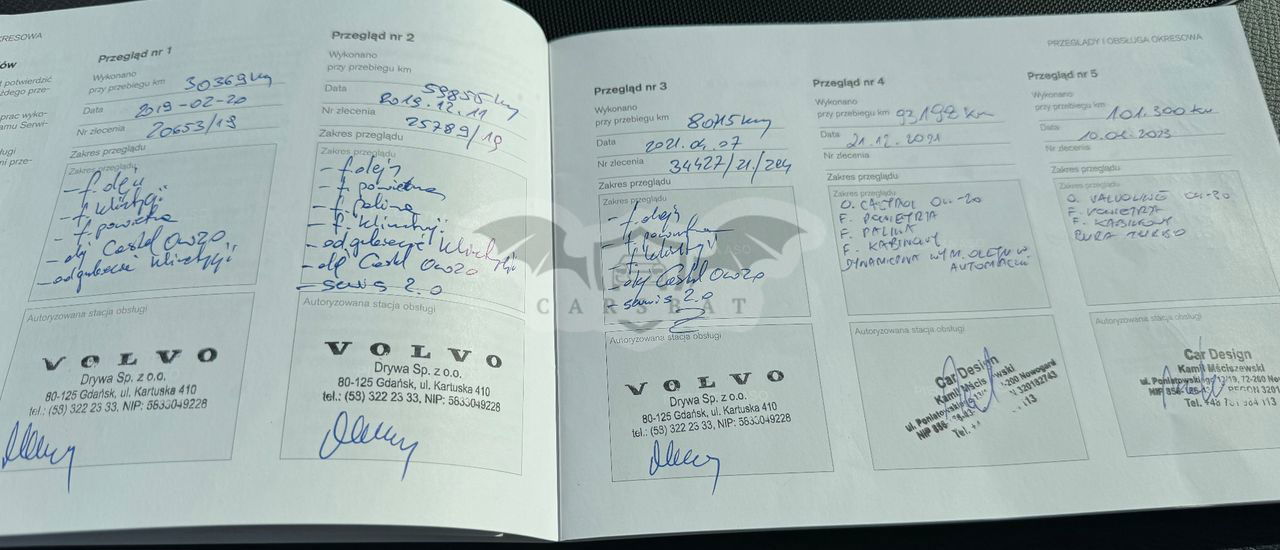 KRESOWA
ów
t potwierdzić
żdego prze-
prac wyko-
amu Serwi-
ługi
ni prze-
Przegląd nr 1
Wykonano
przy przebiegu km 30369km
Data 2019-02-20
Nr zlecenia 20653/19
Zakres przeglądu
Zakres przeglądu
- f. oleju
- f. klimatyzacji
- f. powietrza
- olej Castrol 0W20
- odgrzybianie klimatyzacji
Autoryzowana stacja obsługi
VOLVO
Drywa Sp. z o.o.
80-125 Gdańsk, ul. Kartuska 410
tel.: (58) 322 23 33, NIP: 5833049228
Przegląd nr 2
Wykonano
przy przebiegu km 59855km
Data 2019.12.11
Nr zlecenia 25789/19
Zakres przeglądu
Zakres przeglądu
- f. oleju
- f. powietrza
- f. paliwa
- f. klimatyzacji
- odgrzybianie klimatyzacji
- olej Castrol 0W20
- serwis 2.0
Autoryzowana stacja obsługi
VOLVO
Drywa Sp. z o.o.
80-125 Gdańsk, ul. Kartuska 410
tel.: (58) 322 23 33, NIP: 5833049228
PRZEGLĄDY I OBSŁUGA OKRESOWA
Przegląd nr 3
Wykonano
przy przebiegu km
Data 2021.04.07
Nr zlecenia 34427/21/204
Zakres przeglądu
Zakres przeglądu
- f. oleju
- f. powietrza
- f. klimatyzacji
- olej Castrol 0W20
- serwis 2.0
Autoryzowana stacja obsługi
VOLVO
Drywa Sp. z o.o.
80-125 Gdańsk, ul. Kartuska 410
tel.: (58) 322 23 33, NIP: 5833049228
Przegląd nr 4
Wykonano
przy przebiegu km 92198 km
Data 21.12.2021
Nr zlecenia
Zakres przeglądu
Zakres przeglądu
O. CASTROL 0W-20
F. POWIETRZA
F. PALIWA
F. KABINOWY
DYNAMICZNA WYM. OLEJU W
AUTOMACIE
Autoryzowana stacja obsługi
Car Design
Kamil Mściszewski
ul. Poniatowskiego
Tel.
Przegląd nr 5
Wykonano
przy przebiegu km 101.300 km
Data 2023
Nr zlecenia
Zakres przeglądu
Zakres przeglądu
O. VALVOLINE 0W-20
F. POWIETRZA
F. KABINOWY
RURA TURBO
Autoryzowana stacja obsługi
Car Design
Kamil Mściszewski
ul. Poniatowskiego 12/19, 72-200
Tel. +48
CARSBAT